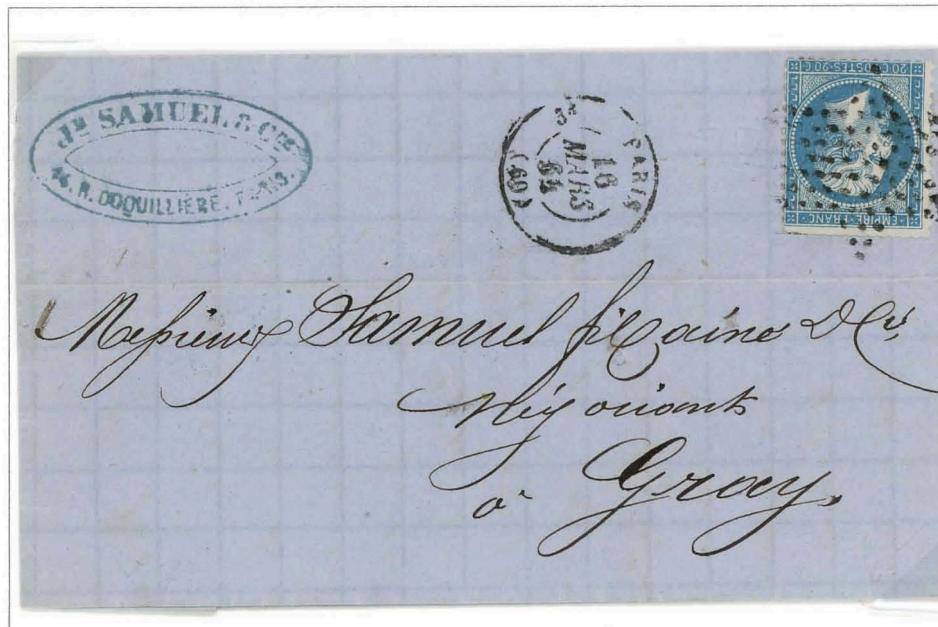 Jh SAMUEL & Cie
44. R. COQUILLIERE. PARIS.
PARIS
16
MARS
64
(60)
20 C POSTES 20 C
EMPIRE FRANC
Messieurs Samuel fils aîné & Cie
Négociants
à Gray.